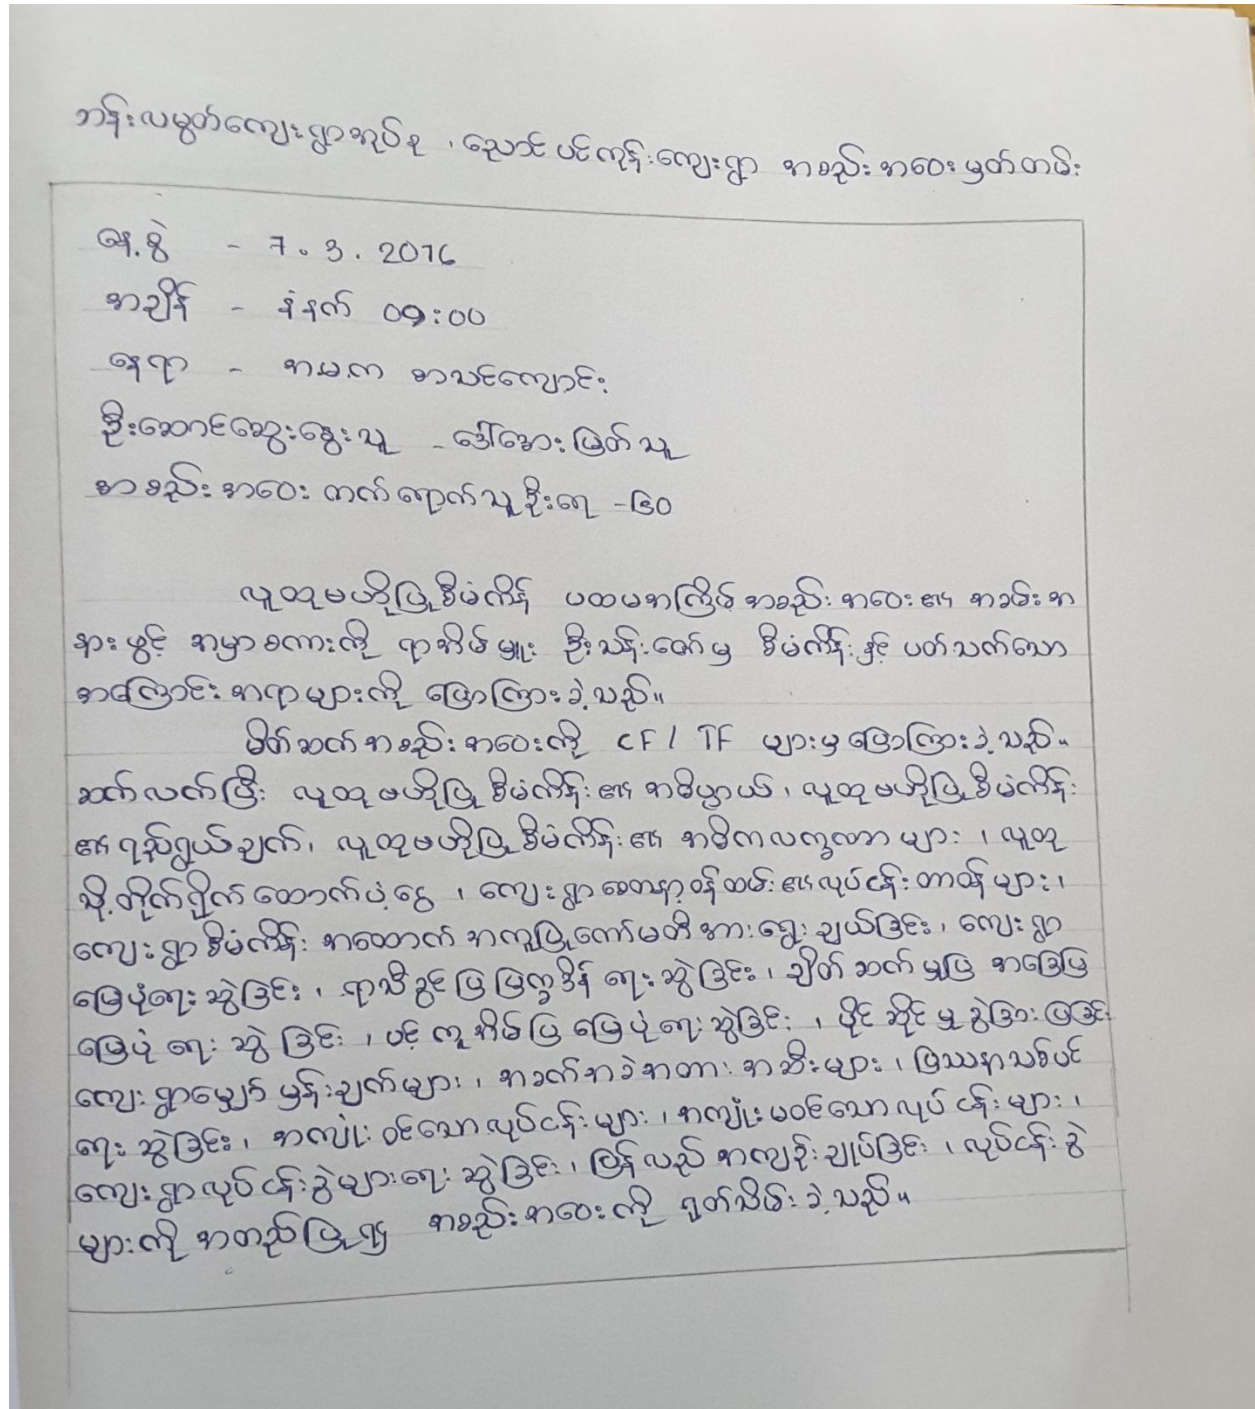 ဘန်းလမွတ်ကျေးရွာအုပ်စု ၊ ညောင်ပင်ကုန်းကျေးရွာ အစည်းအဝေးမှတ်တမ်း
နေ့စွဲ - 7.3.2016
အချိန် - နံနက် ၀၉:၀၀
နေရာ - အ.မ.က စာသင်ကျောင်း
ဦးဆောင်ဆွေးနွေးသူ - ဒေါ်အေးမြတ်သူ
အစည်းအဝေးတက်ရောက်သူဦးရေ - ၆၀
လူထုဗဟိုပြုစီမံကိန် ပထမအကြိမ် အစည်းအဝေး၏ အခမ်းအ
နားဖွင့် အမှာစကားကို ရာအိမ်မှူး ဦးသန်းဇော်မှ စီမံကိန်းနှင့် ပတ်သက်သော
အကြောင်းအရာများကို ပြောကြားခဲ့သည်။
မိတ်ဆက်အစည်းအဝေးကို CF/TF များမှပြောကြားခဲ့သည်။
ဆက်လက်ပြီး လူထုဗဟိုပြုစီမံကိန်း၏ အဓိပ္ပာယ်၊ လူထုဗဟိုပြုစီမံကိန်း
၏ရည်ရွယ်ချက်၊ လူထုဗဟိုပြုစီမံကိန်း၏ အဓိကလက္ခဏာများ ၊ လူထု
သို့တိုက်ရိုက်ထောက်ပံ့ငွေ ၊ ကျေးရွာစေတနာ့ဝန်ထမ်း၏လုပ်ငန်းတာဝန်များ၊
ကျေးရွာစီမံကိန်း အထောက်အကူပြုကော်မတီအားရွေးချယ်ခြင်း၊ ကျေးရွာ
မြေပုံရေးဆွဲခြင်း၊ ရာသီခွင်ပြပြက္ခဒိန်ရေးဆွဲခြင်း၊ ချိတ်ဆက်မှုပြ အခြေပြ
မြေပုံရေးဆွဲခြင်း ၊ ပင့်ကူအိမ်ပြမြေပုံရေးဆွဲခြင်း ၊ ပိုင်ဆိုင်မှုခွဲခြားပြခြင်း
ကျေးရွာမျှော်မှန်းချက်များ၊ အခက်အခဲအတားအဆီးများ၊ ပြဿနာသစ်ပင်
ရေးဆွဲခြင်း၊ အကျုံးဝင်သောလုပ်ငန်းများ၊ အကျုံးမဝင်သောလုပ်ငန်းများ၊
ကျေးရွာလုပ်ငန်းခွဲများရေးဆွဲခြင်း၊ ပြန်လည်အကျဉ်းချုပ်ခြင်း ၊ လုပ်ငန်းခွဲ
များကို အတည်ပြု၍ အစည်းအဝေးကို ရုတ်သိမ်းခဲ့သည်။